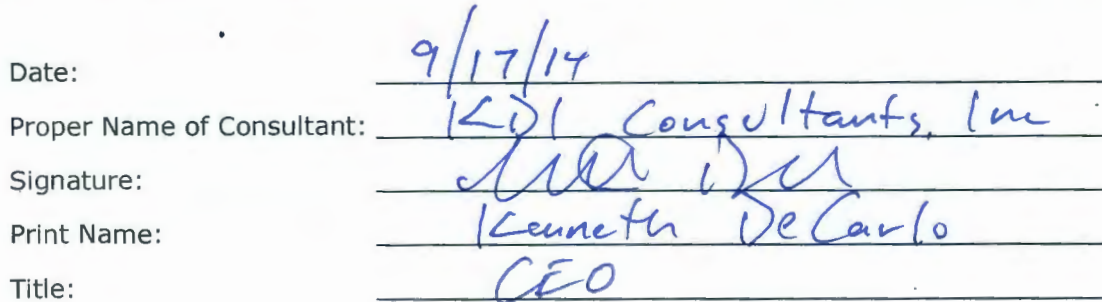 Date: 9/17/14
Proper Name of Consultant: KDI Consultants, Inc
Signature:
Print Name: Kenneth DeCarlo
Title: CEO